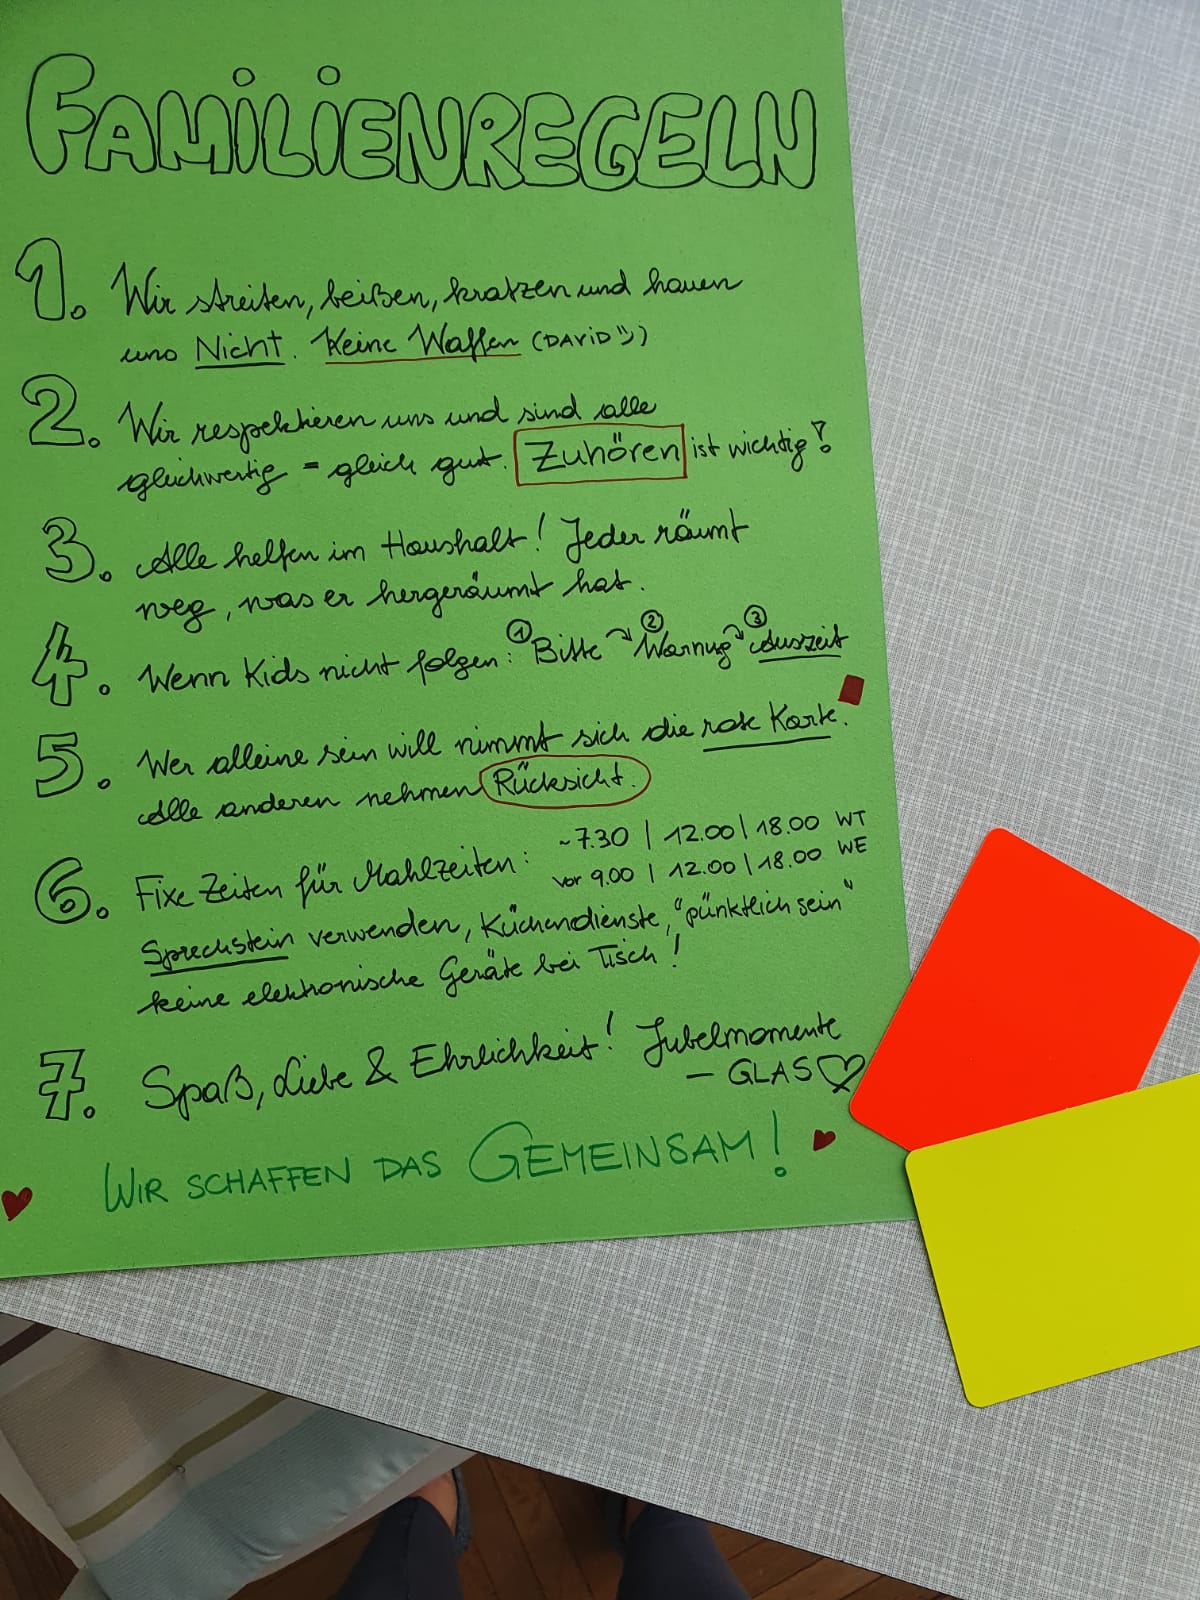 FAMILIENREGELN
1. Wir streiten, beißen, kratzen und hauen
uns Nicht. Keine Waffen (DAVID ツ)
2. Wir respektieren uns und sind alle
gleichwertig = gleich gut. Zuhören ist wichtig!
3. Alle helfen im Haushalt! Jeder räumt
weg, was er hergeräumt hat.
4. Wenn Kids nicht folgen: ① Bitte ② Warnug ③ Auszeit
5. Wer alleine sein will nimmt sich die rote Karte.
Alle anderen nehmen Rücksicht.
6. Fixe Zeiten für Mahlzeiten: ~7.30 | 12.00 | 18.00 WT
vor 9.00 | 12.00 | 18.00 WE
Sprechstein verwenden, Küchendienste, "pünktlich sein"
keine elektronische Geräte bei Tisch!
7. Spaß, Liebe & Ehrlichkeit! Jubelmomente
– GLAS ♡
♥ WIR SCHAFFEN DAS GEMEINSAM! ♥